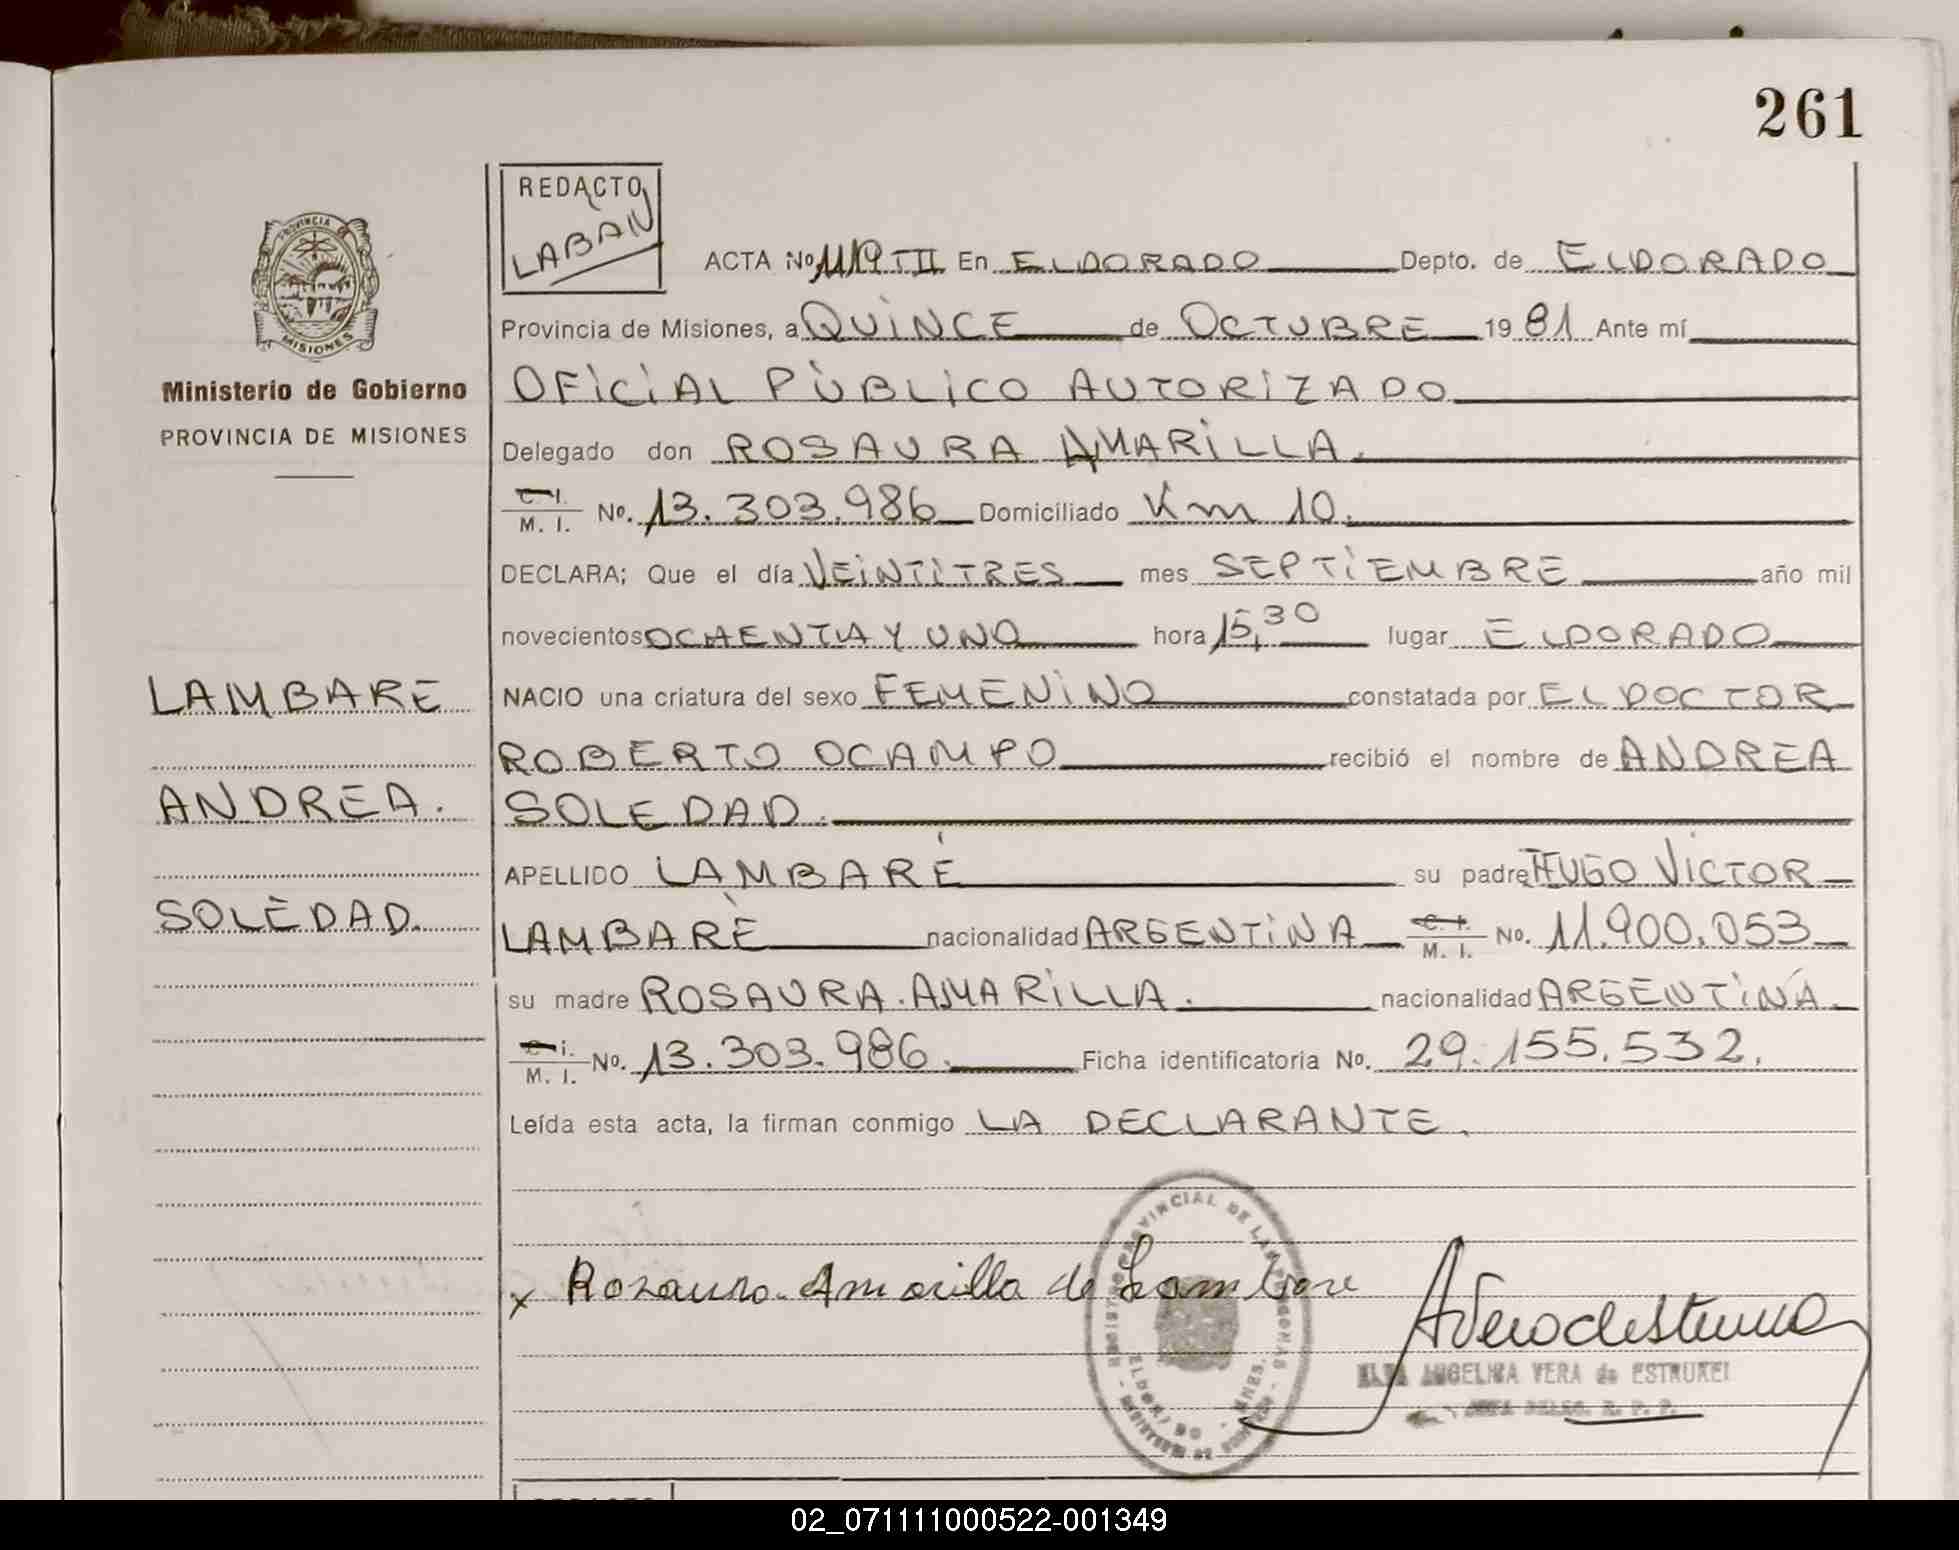 261
REDACTO
LABAN
PROVINCIA
MISIONES
Ministerio de Gobierno
PROVINCIA DE MISIONES
ACTA No 1119 TII En ELDORADO Depto. de ELDORADO
Provincia de Misiones, a QUINCE de OCTUBRE 1981 Ante mí
OFICIAL PÚBLICO AUTORIZADO
Delegado don ROSAURA AMARILLA.
C. I.
M. I. No. 13.303.986 Domiciliado Km 10.
DECLARA; Que el día VEINTITRES mes SEPTIEMBRE año mil
novecientos OCHENTA Y UNO hora 15,30 lugar ELDORADO
LAMBARE
NACIO una criatura del sexo FEMENINO constatada por EL DOCTOR
ROBERTO OCAMPO recibió el nombre de ANDREA
ANDREA.
SOLEDAD.
APELLIDO LAMBARÉ su padre HUGO VICTOR
SOLEDAD.
LAMBARÉ nacionalidad ARGENTINA C. I. M. I. No. 11.900.053
su madre ROSAURA AMARILLA. nacionalidad ARGENTINA.
C. I.
M. I. No. 13.303.986. Ficha identificatoria No. 29.155.532.
Leída esta acta, la firman conmigo LA DECLARANTE.
x Rosaura Amarilla de Lambare
PROVINCIAL DE LAS PERSONAS
ELDORADO - MNES.
ELBA ANGELICA VERA de ESTRUKEI
02_071111000522-001349